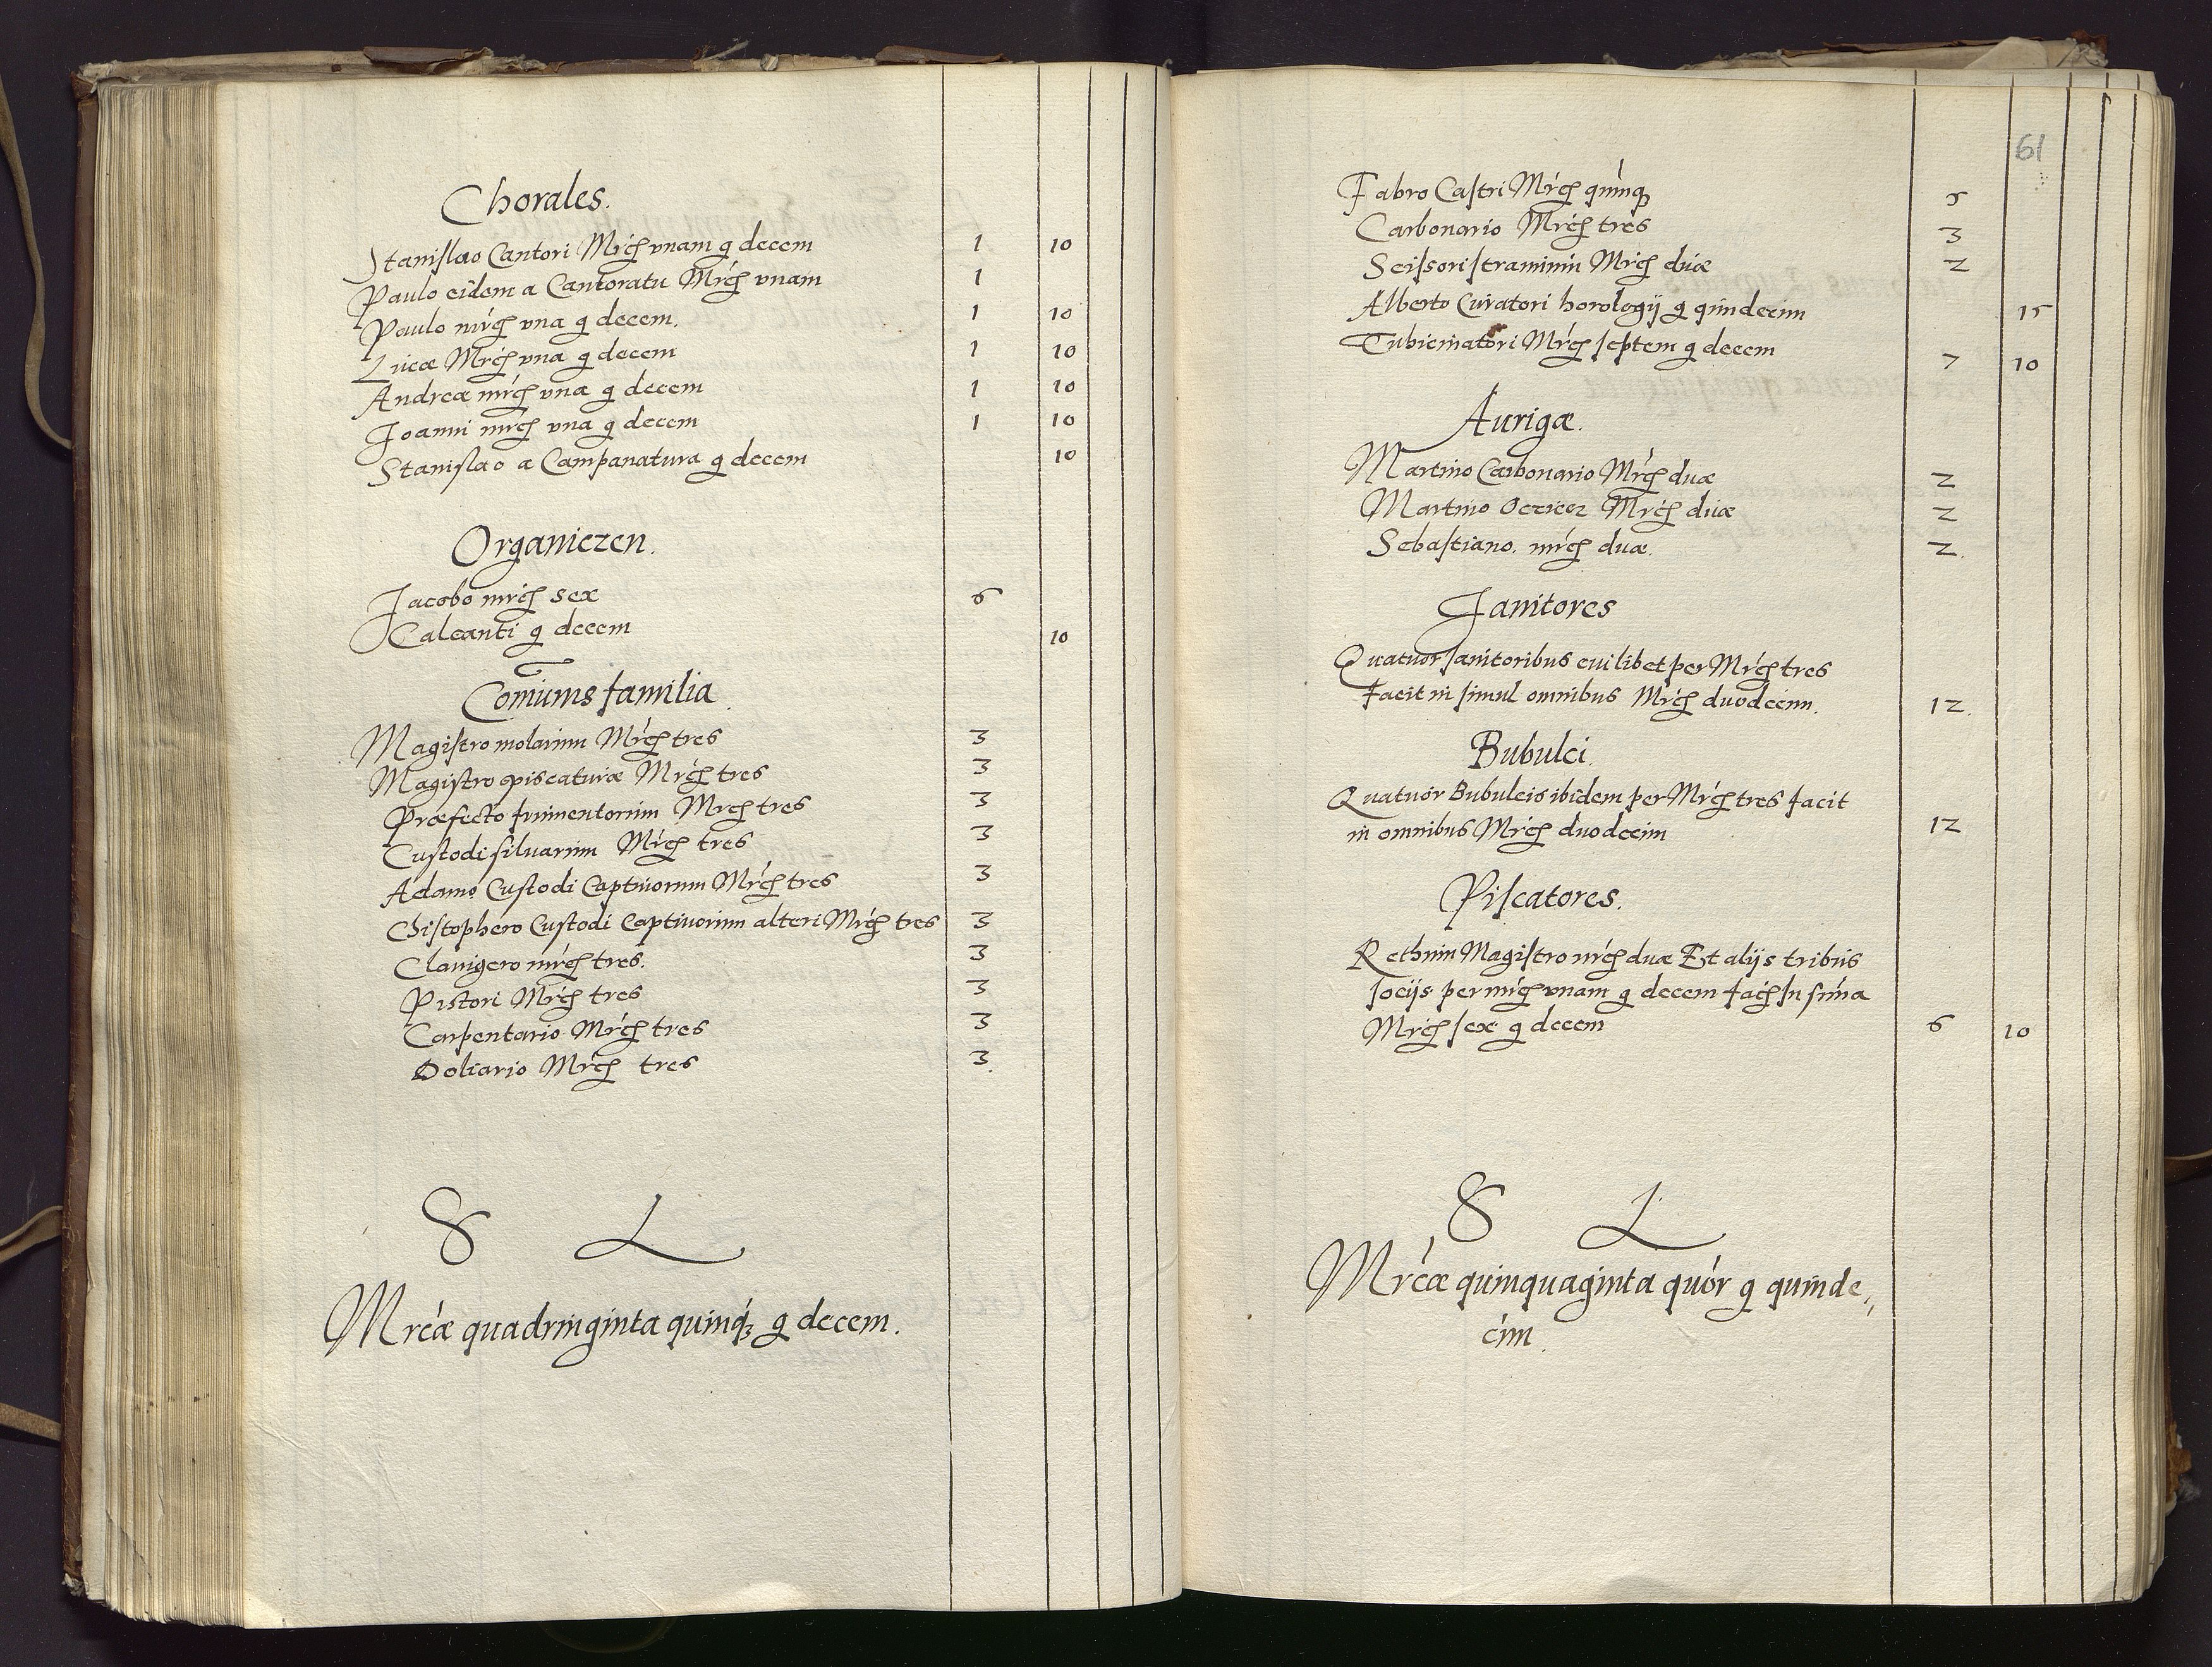 Chorales.
Stanislao Cantori Mrcħ vnam g decem 1 10
Paulo eidem a Cantoratu Mrcħ vnam 1
Paulo mrcħ vna g decem. 1 10
Lucæ Mrcħ vna g decem 1 10
Andreæ mrcħ vna g decem 1 10
Joanni mrcħ vna g decem 1 10
Stanislao a Campanatura g decem 10
Organiczen.
Jacobo mrcħ sex 6
Calcanti g decem 10
Comunis familia.
Magistro molarum Mrcħ tres 3
Magistro piscaturæ Mrcħ tres 3
Præfecto frumentorum Mrcħ tres 3
Custodi siluarum Mrcħ tres 3
Adamo Custodi Captiuorum Mrcħ tres 3
Christophero Custodi Captiuorum alteri Mrcħ tres 3
Clauigero mrcħ tres. 3
Pistori Mrcħ tres 3
Carpentario Mrcħ tres 3
Doliario Mrcħ tres 3.
S L
Mrcæ quadringinta quinq; g decem.
61
Fabro Castri Mrcħ quinq; 5
Carbonario Mrcħ tres 3
Scissori straminũ Mrcħ duæ 2
Alberto Curatori horologij g quindecim 15
Tubicinatori Mrcħ septem g decem 7 10
Aurigæ.
Martino Carbonario Mrcħ duæ 2
Martino Oczicez Mrcħ duæ 2
Sebastiano. mrcħ duæ. 2.
Janitores
Quatuor Janitoribus cuilibet per Mrcħ tres
facit in simul omnibus Mrcħ duodecim. 12.
Bubulci.
Quatuor Bubulcis ibidem per Mrcħ tres facit
in omnibus Mrcħ duodecim 12
Piscatores.
Rethium Magistro mrcħ duæ Et alijs tribus
socijs per mrcħ vnam g decem facħ In suma
Mrcħ sex g decem 6 10
S L
Mrcæ quinquaginta quor g quinde,,
cim.